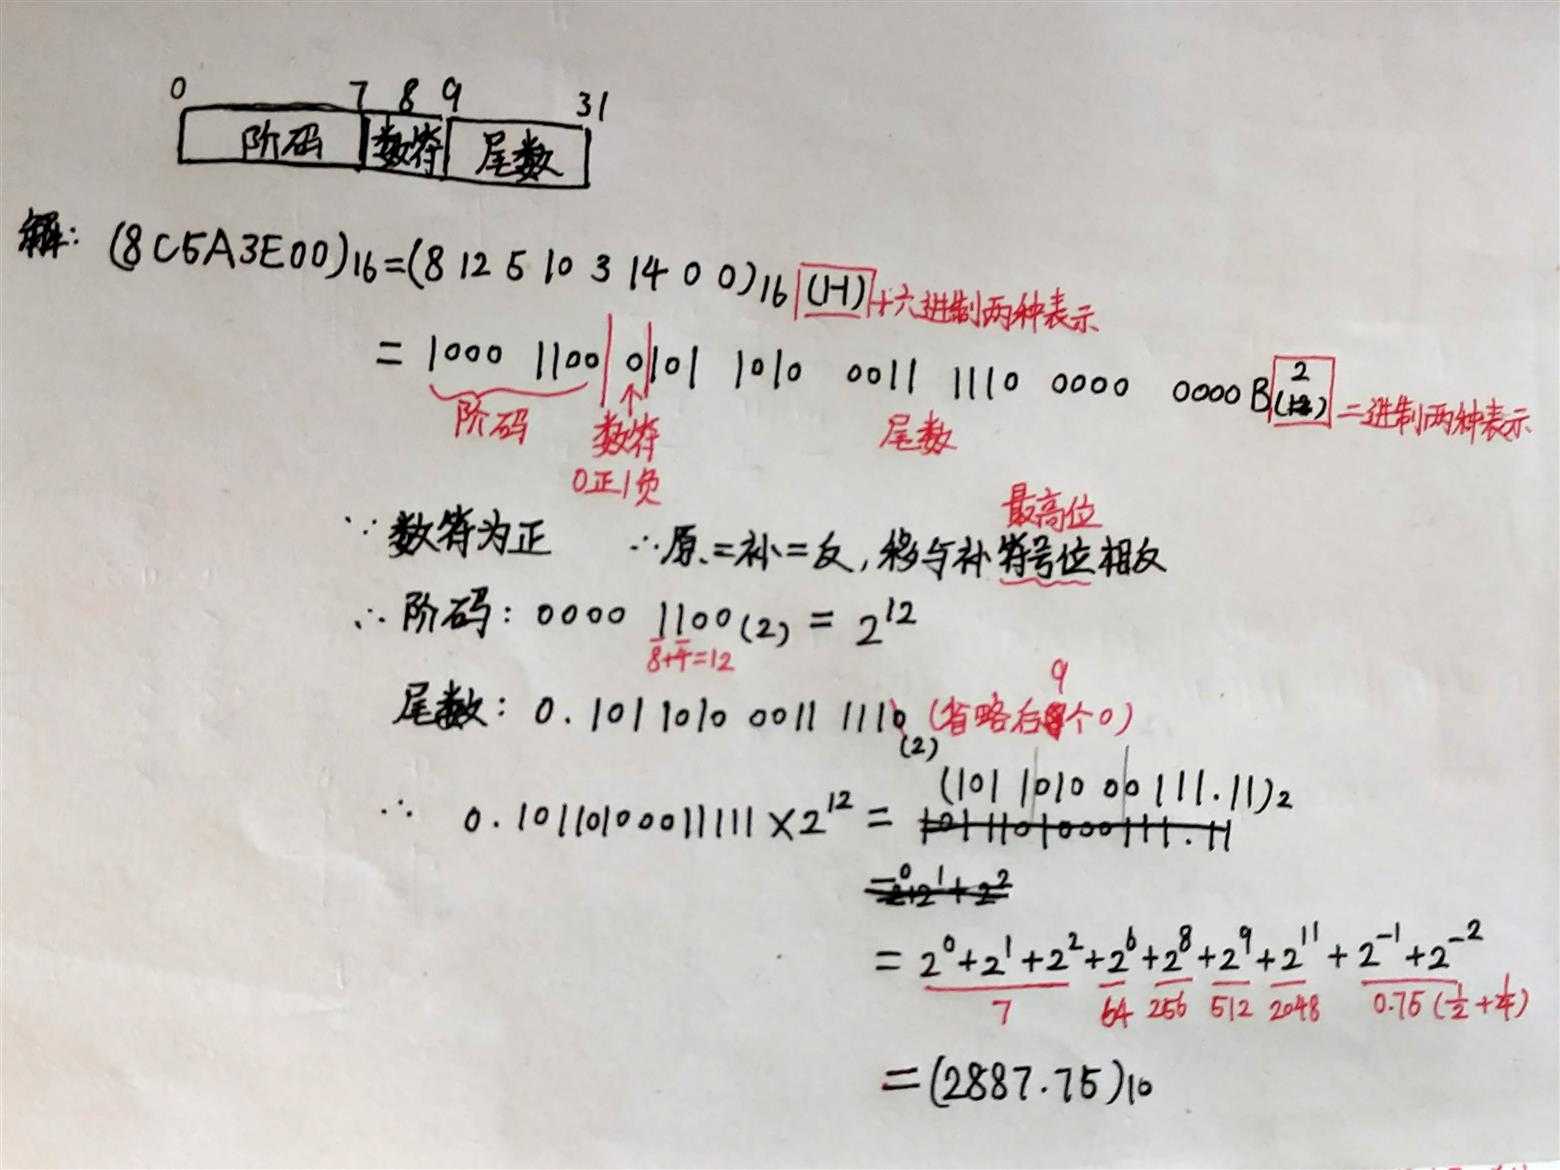 0 7 8 9 31
阶码 数符 尾数
解: (8C5A3E00)₁₆=(8 12 5 10 3 14 0 0)₁₆ (H) 十六进制两种表示
= 1000 1100 0101 1010 0011 1110 0000 0000 B (2) 二进制两种表示
阶码 数符 尾数
0正1负
最高位
∵数符为正 ∴原=补=反,移与补符号位相反
∴阶码: 0000 1100(2) = 2¹²
8+4=12
尾数: 0.1011010 0011 1110(2) (省略后9个0)
∴ 0.10110100011111×2¹² = (101 1010 00111.11)₂
1011101000111.11
=2⁰+2¹+2²
= 2⁰+2¹+2²+2⁶+2⁸+2⁹+2¹¹+2⁻¹+2⁻²
7 64 256 512 2048 0.75(½+¼)
=(2887.75)₁₀